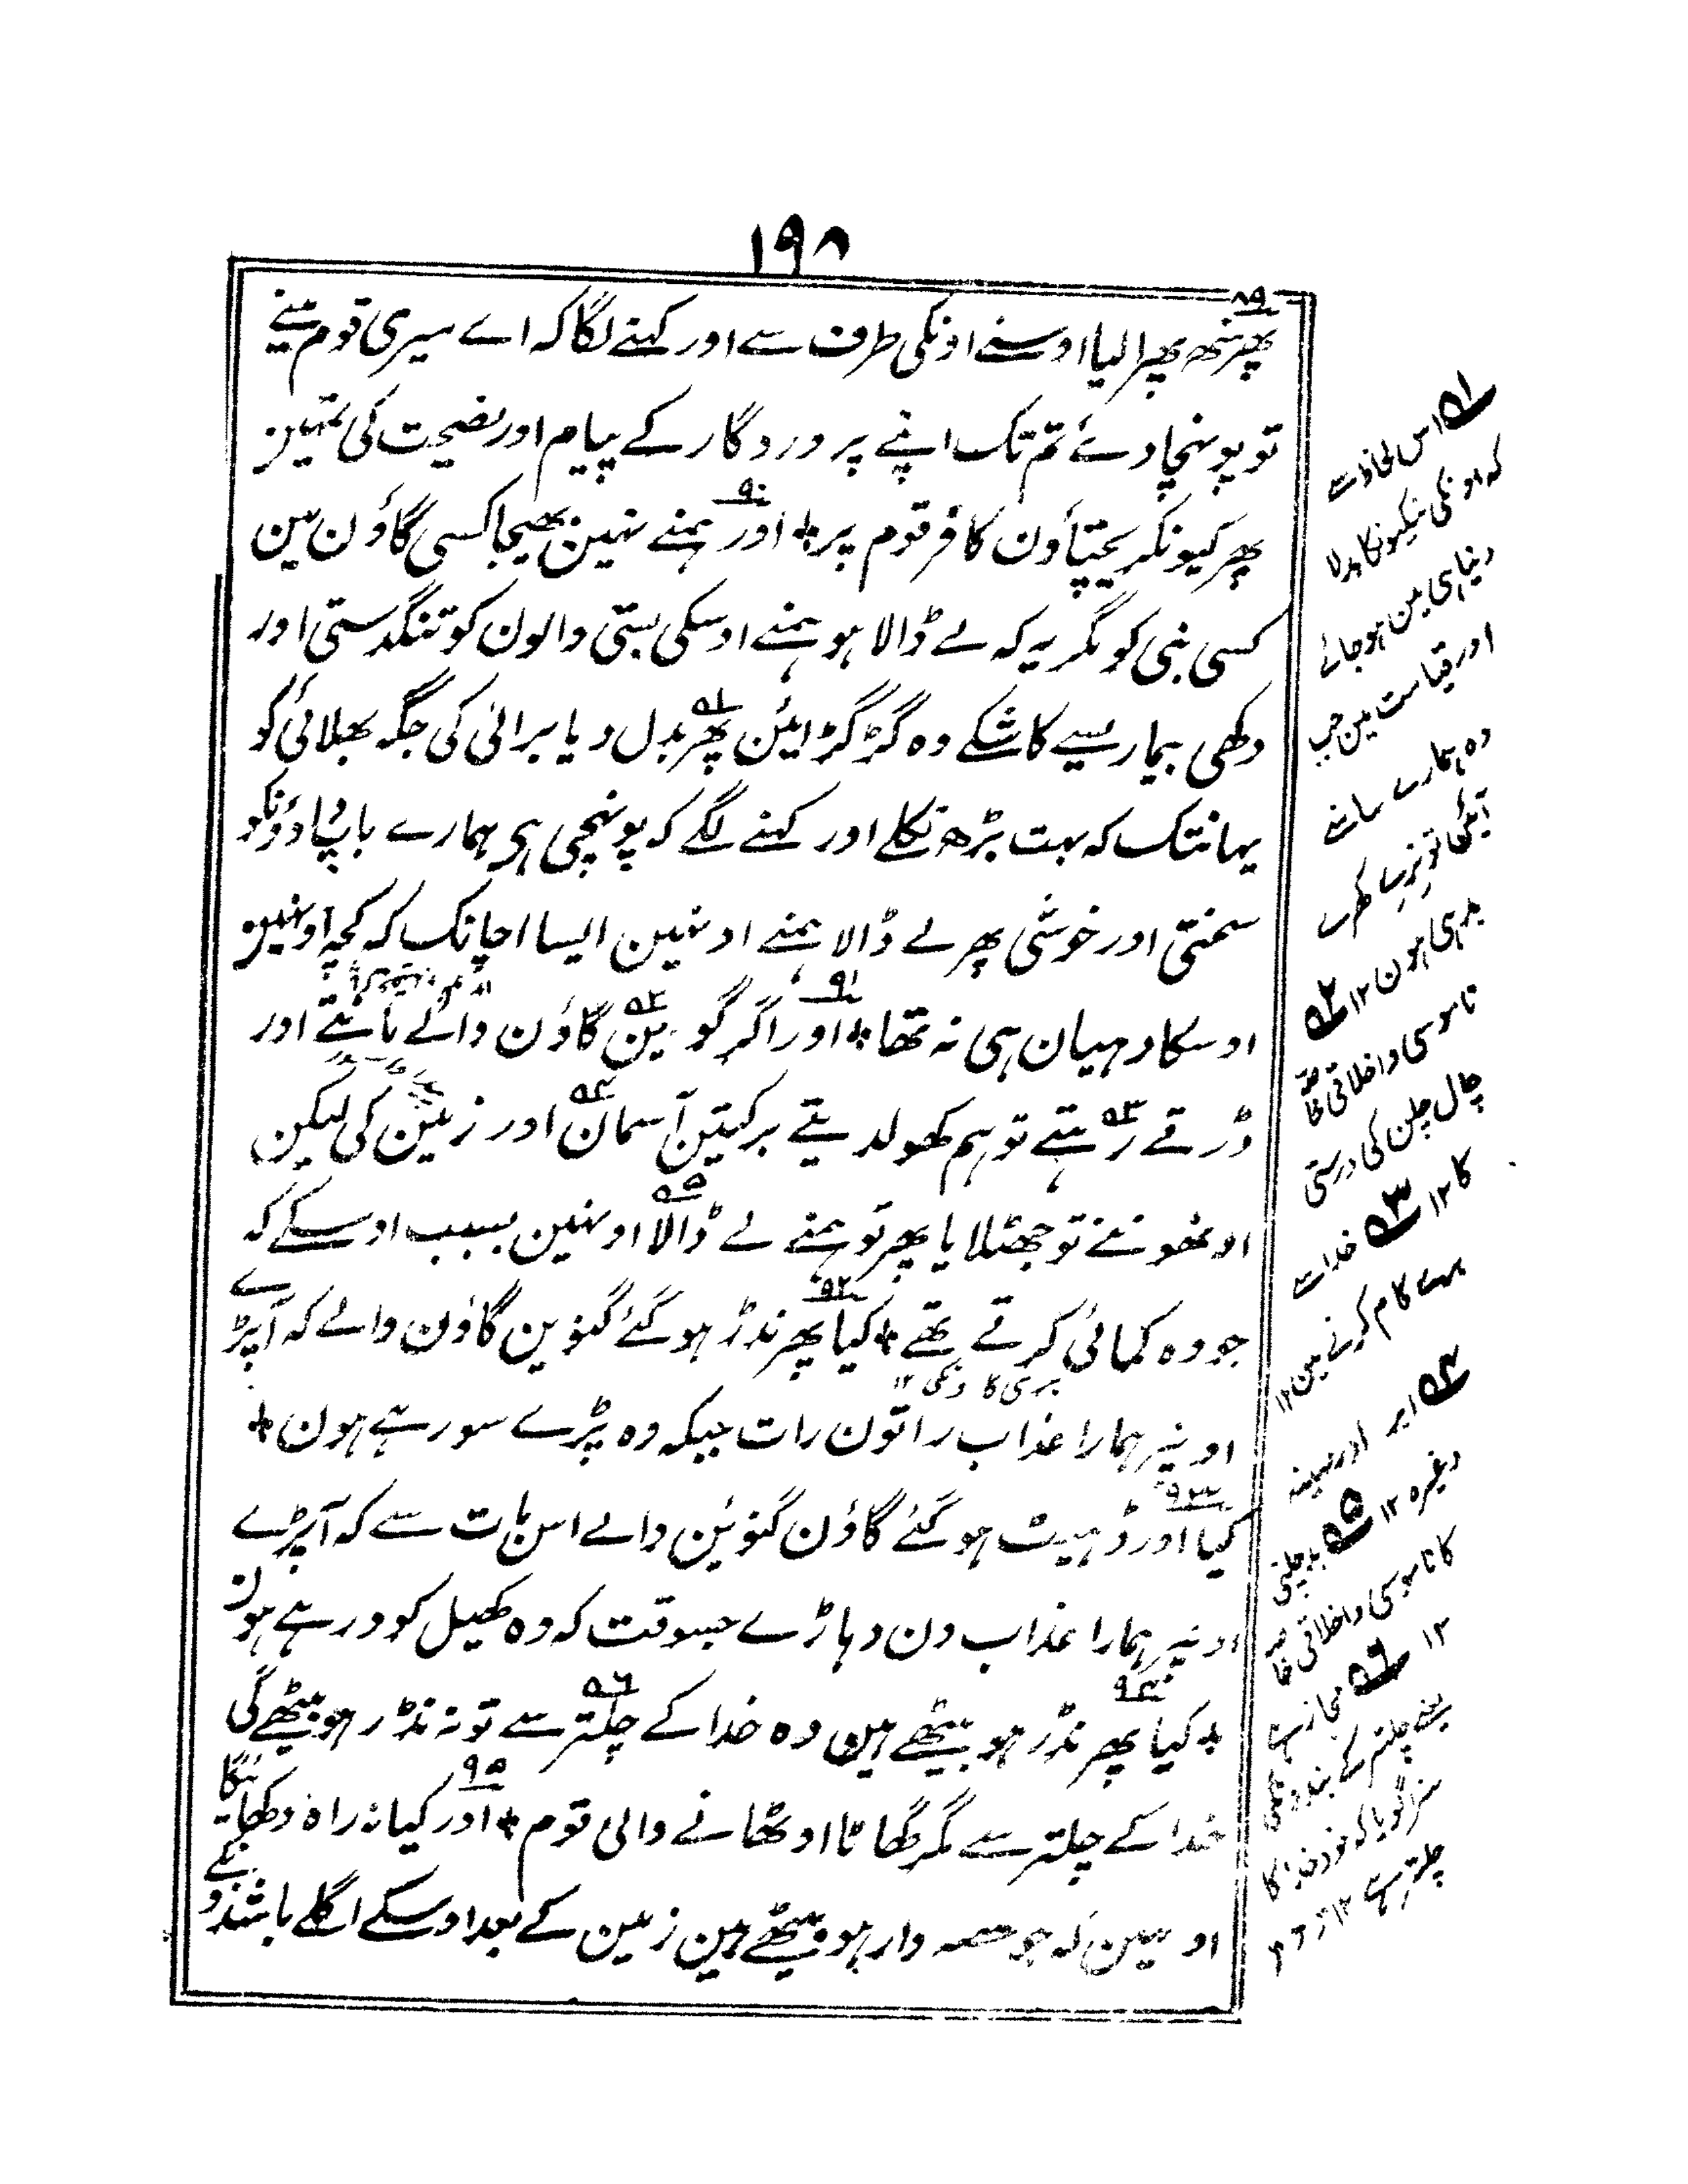 ۱۹۸
۸۹
پھر منھ پھرا لیا اوسنے اونکی طرف سے اور کہنے لگا کہ اے میری قوم مینے
تو پونہچا دئے تم تک اپنے پروردگار کے پیام اور نصیحت کی تمہین
۹۰
پھر کیونکر پچتپاؤن کافر قوم پر + اور ہمنے نہین بھیجا کسی گاؤن مین
کسی نبی کو مگر یہ کہ لے ڈالا ہو ہمنے اوسکی بستی والون کو تنگدستی اور
۵۱
دکھی بیمار سے کاشکے وہ گڑگڑائین پھر بدل دیا برائی کی جگہ بھلائی کو
یہانتک کہ بہت بڑھ نکلے اور کہنے لگے کہ پونہچی ہی ہمارے باپ دادؤنکو
سختی اور خوشی پھر لے ڈالا ہمنے اونہین ایسا اچانک کہ کچھ اونہین
۹۱ ۵۲
اوسکا دہیان ہی نہ تھا + اور اگر گوین گاؤن والے مانتے اور
۵۳ ۵۴
ڈرتے رہتے تو ہم کھولدیتے برکتین آسمان اور زمین کی لیکن
۵۵
اونھونے تو جھٹلایا پھر تو ہمنے لے ڈالا اونہین بسبب اوسکے کہ
۹۲
جو وہ کمائی کرتے تھے + کیا پھر نڈر ہو گئے گنوین گاؤن والے کہ آپڑے
اونپر ہمارا عذاب راتون رات جبکہ وہ پڑے سو رہے ہون +
۹۳
کیا اور ڈہیٹ ہو گئے گاؤن گنوئین والے اس بات سے کہ آپڑے
اونپر ہمارا عذاب دن دہاڑے جسوقت کہ وہ کھیل کود رہے ہون
۹۴ ۵۶
+ کیا پھر نڈر ہو بیٹھے ہین وہ خدا کے چلتر سے تو نہ نڈر ہو بیٹھے گی
۹۵
خدا کے چلتر سے مگر گھاٹا اوٹھانے والی قوم + اور کیا نہ راہ دکھائیگا
اونہین کہ جو حصہ دار ہو بیٹھے ہین زمین کے بعد اوسکے اگلے باشندونکے
۵۱ اس لحاظ سے
کہ اونکی نیکیونکا بدلا
دنیا ہی مین ہو جائے
اور قیامت مین جب
وہ ہمارے سامنے
بدی ہون ۱۲ ۵۲
ناموسی و اخلاقی
چال چلن کی درستی
کا ۱۲ ۵۳ خدا سے
کام کرنے مین ۱۲
۵۴ ابر اور مینھ
وغیرہ ۱۲ ۵۵ بدچلنی
کا ناموسی و اخلاقی
۱۲ ۵۶ مجاز ہے
سزا گویا کہ خود خدا کا
چلتر ہے ۱۲